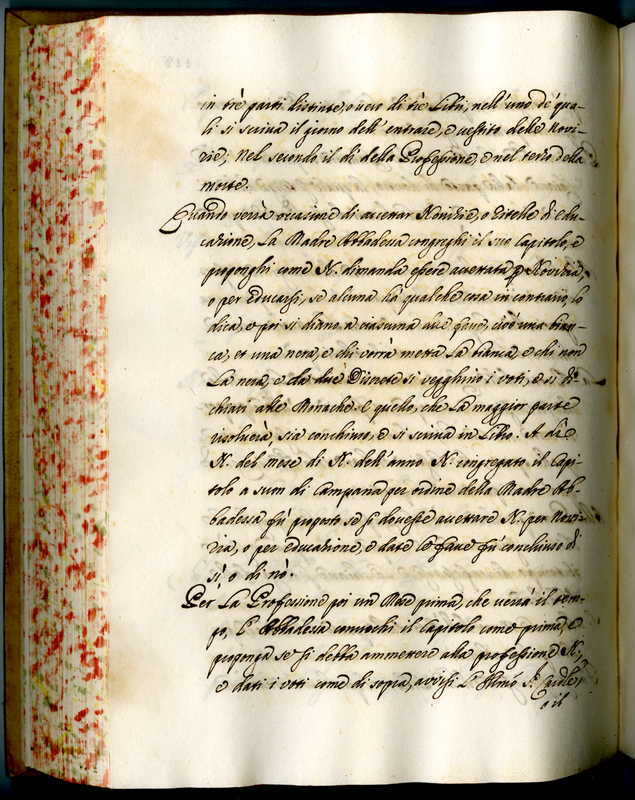 in trè parti distinte, o vero di trè Libri, nell' uno de' qua-
li si scriva il giorno dell' entrare, e vestito delle Novi-
zie; Nel secondo il dì della Professione, e nel terzo della
morte.
Quando verrà occasione di accettar Novizie, o Zitelle di edu-
cazione, La Madre Abbadessa congreghi il suo Capitolo, e
proponghi come N. dimanda essere accettata p Novizia,
o per Educarsi, se alcuna hà qualche cosa in contrario, lo
dica, e poi si diano, a ciascuna due fave, cioè una bian-
ca, et una nera, e chi vorrà metta La bianca, e chi non
La nera, e da due Discrete si vegghino i voti, e si di-
chiari alle Monache E quello, che La maggior parte
risolverà, sia conchiuso, e si scriva in Libro. A dì e
N. del mese di N. dell' anno N. congregato il Capi-
tolo a suon di Campana per ordine della Madre Ab-
badessa fù proposto se si dovesse accettare N. per Novi-
zia, o per educazione, e date le fave fù conchiuso di
sì, o di nò.
Per La Professione poi un Mese prima, che verrà il tem-
po, L' Abbadessa convochi il Capitolo come prima, e
proponga se si debba ammettere alla professione N.,
e dati i voti come di sopra, avvisi L' Illmo Sr. Cardle,
o il